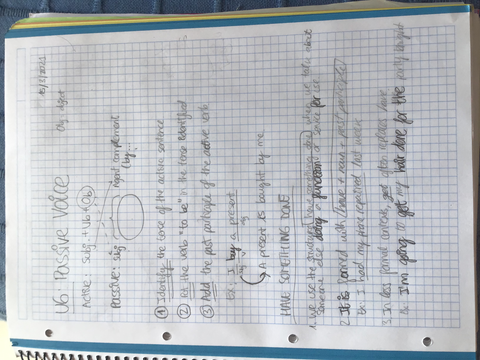 15/3/2021
U6 Passive Voice
Active: Subj + Vb + Ob
Passive: Subj
Agent complement
(by...
① Identify the tense of the active sentence
② Put the verb "to be" in the tense identified
③ Add the past participle of the active verb
Ex: I buy a present
A present is bought by me
HAVE SOMETHING DONE
1. We use the structure have something done when we talk about
someone else doing a function or service for us
2. It is formed with have + noun + past participle
Ex: I had my repaired last week
3. In less formal contexts, get often replaces have
Ex. I'm going to get my hair done for the party tonight